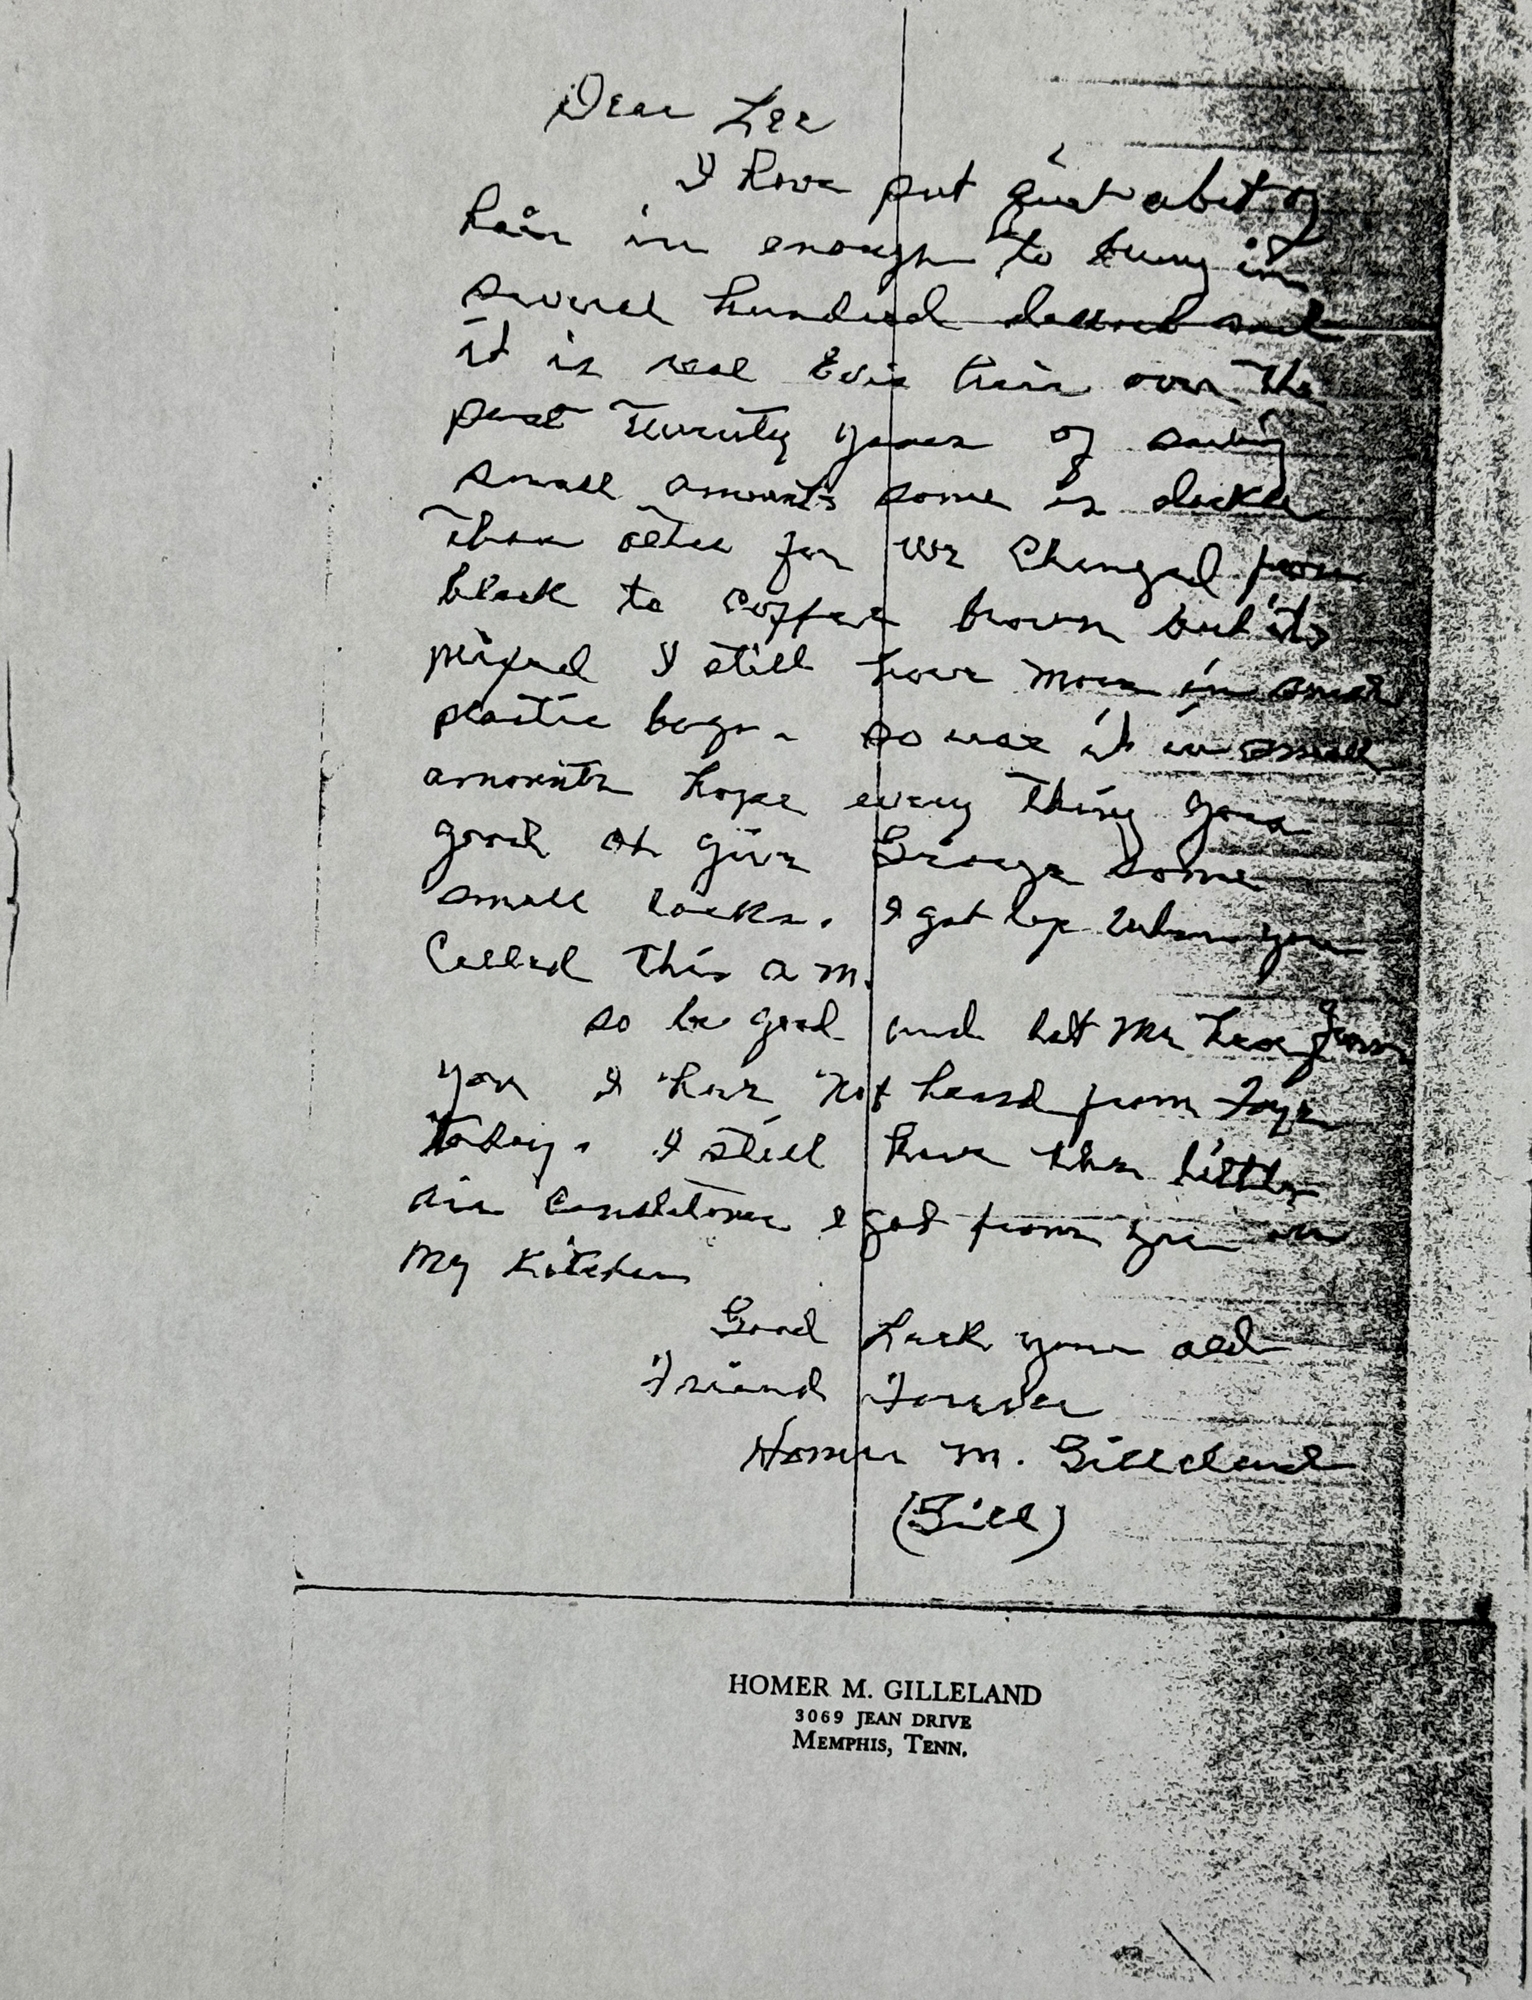 Dear Lee
I have put quit abit of
hair in enough to bring in
several hundred dollars and
it is real Elvis hair over the
past Twenty years of saving
small amounts some is darker
Than other for we Changed from
black to coffee brown but its
mixed I still have more in small
plastic bags. so use it in small
amounts hope every thing goes
good at give George some
small locks. I got up when you
Called this a m.
so be good and let me hear from
you I have not heard from Faye
today. I still have the little
air conditoner I got from you in
my kitchen
Good Luck your old
Friend Forever
Homer M. Gilleland
(Gill)
HOMER M. GILLELAND
3069 JEAN DRIVE
MEMPHIS, TENN.